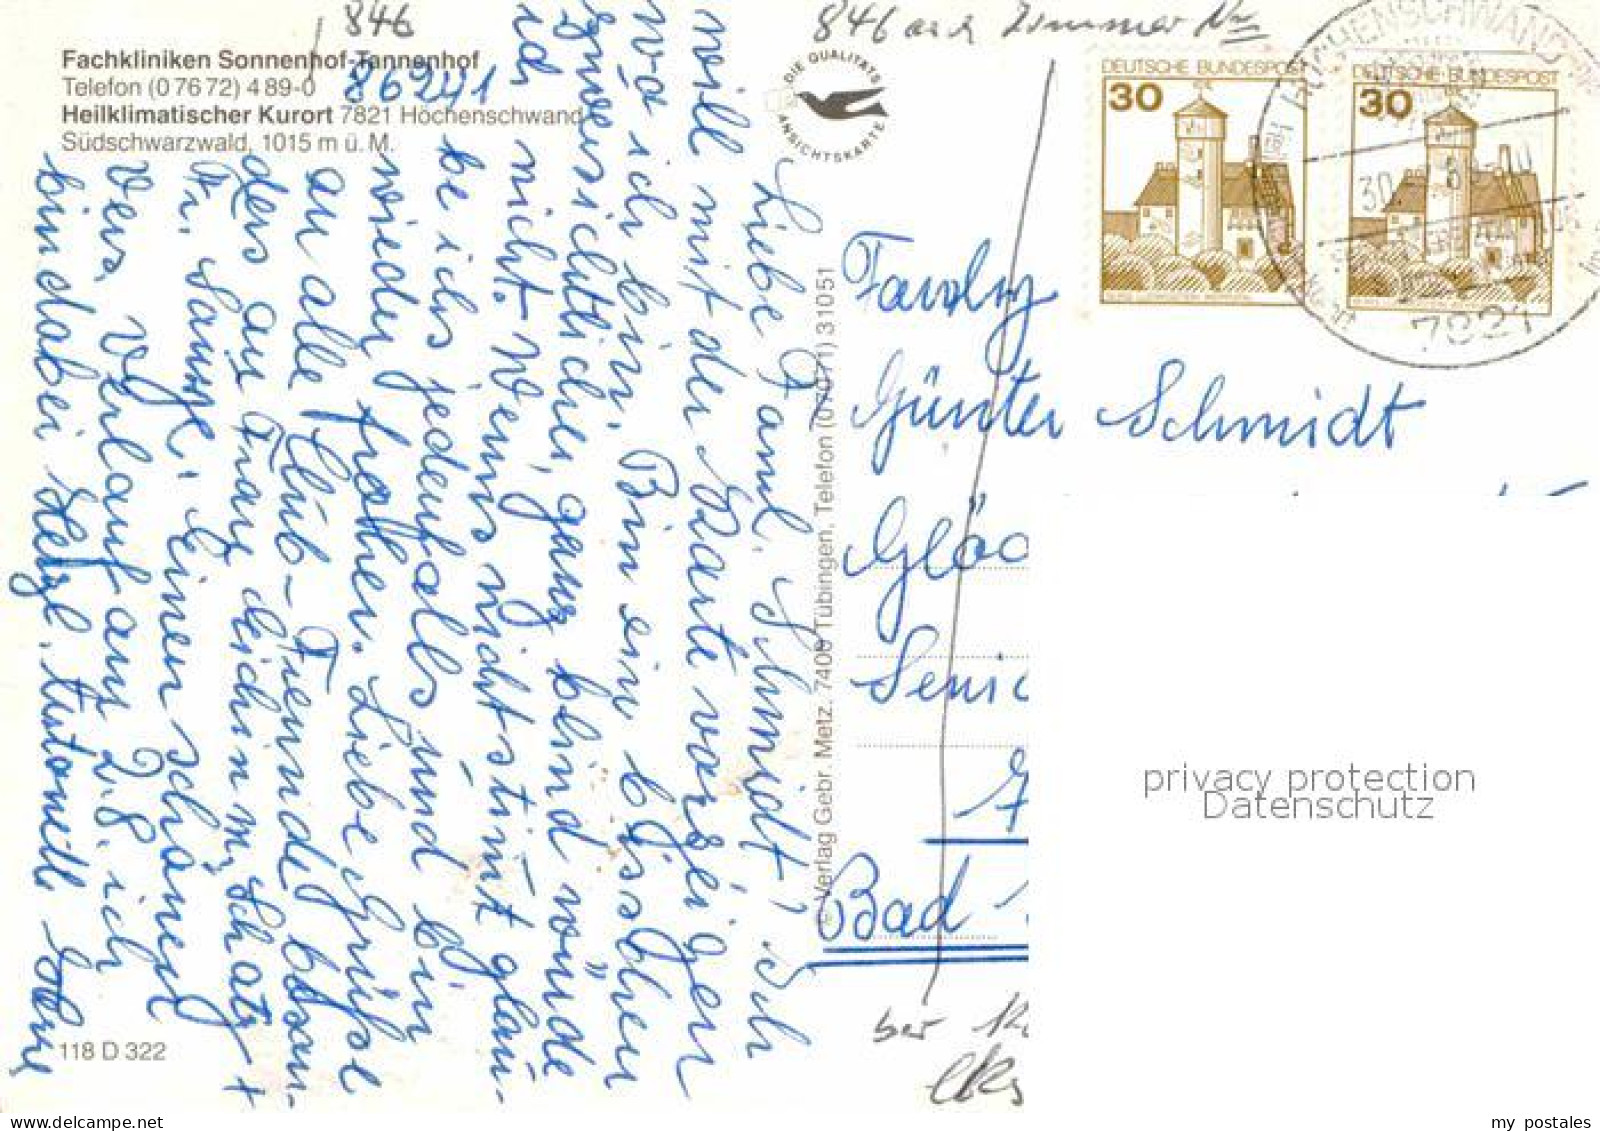 846
846 auch Zimmer Nr
Fachkliniken Sonnenhof-Tannenhof
Telefon (0 76 72) 4 89-0
86241
Heilklimatischer Kurort 7821 Höchenschwand
Südschwarzwald, 1015 m ü. M.
DIE QUALITÄTS
ANSICHTSKARTE
DEUTSCHE BUNDESPOST
30
DEUTSCHE BUNDESPOST
30
HÖCHENSCHWAND
7821
Liebe Faml. Schmidt, Ich
will mit der Karte vorzeigen
wo ich bin. Bin ein bisschen
zuversichtlicher, ganz blind würde
ich nicht. Wenns nicht stimt glau-
be ichs jedenfalls und bin
wieder froher. Liebe Grüße
an alle Club-Freunde beson-
ders aus Frau
Fr. Schatz +
Einen schönen
Verlauf am 2.8. ich
bin dabei Herzl.
Verlag Gebr. Metz, 7400 Tübingen, Telefon (07071) 31051
Family
Günter Schmidt
Bad
118 D 322
privacy protection
Datenschutz
my postales